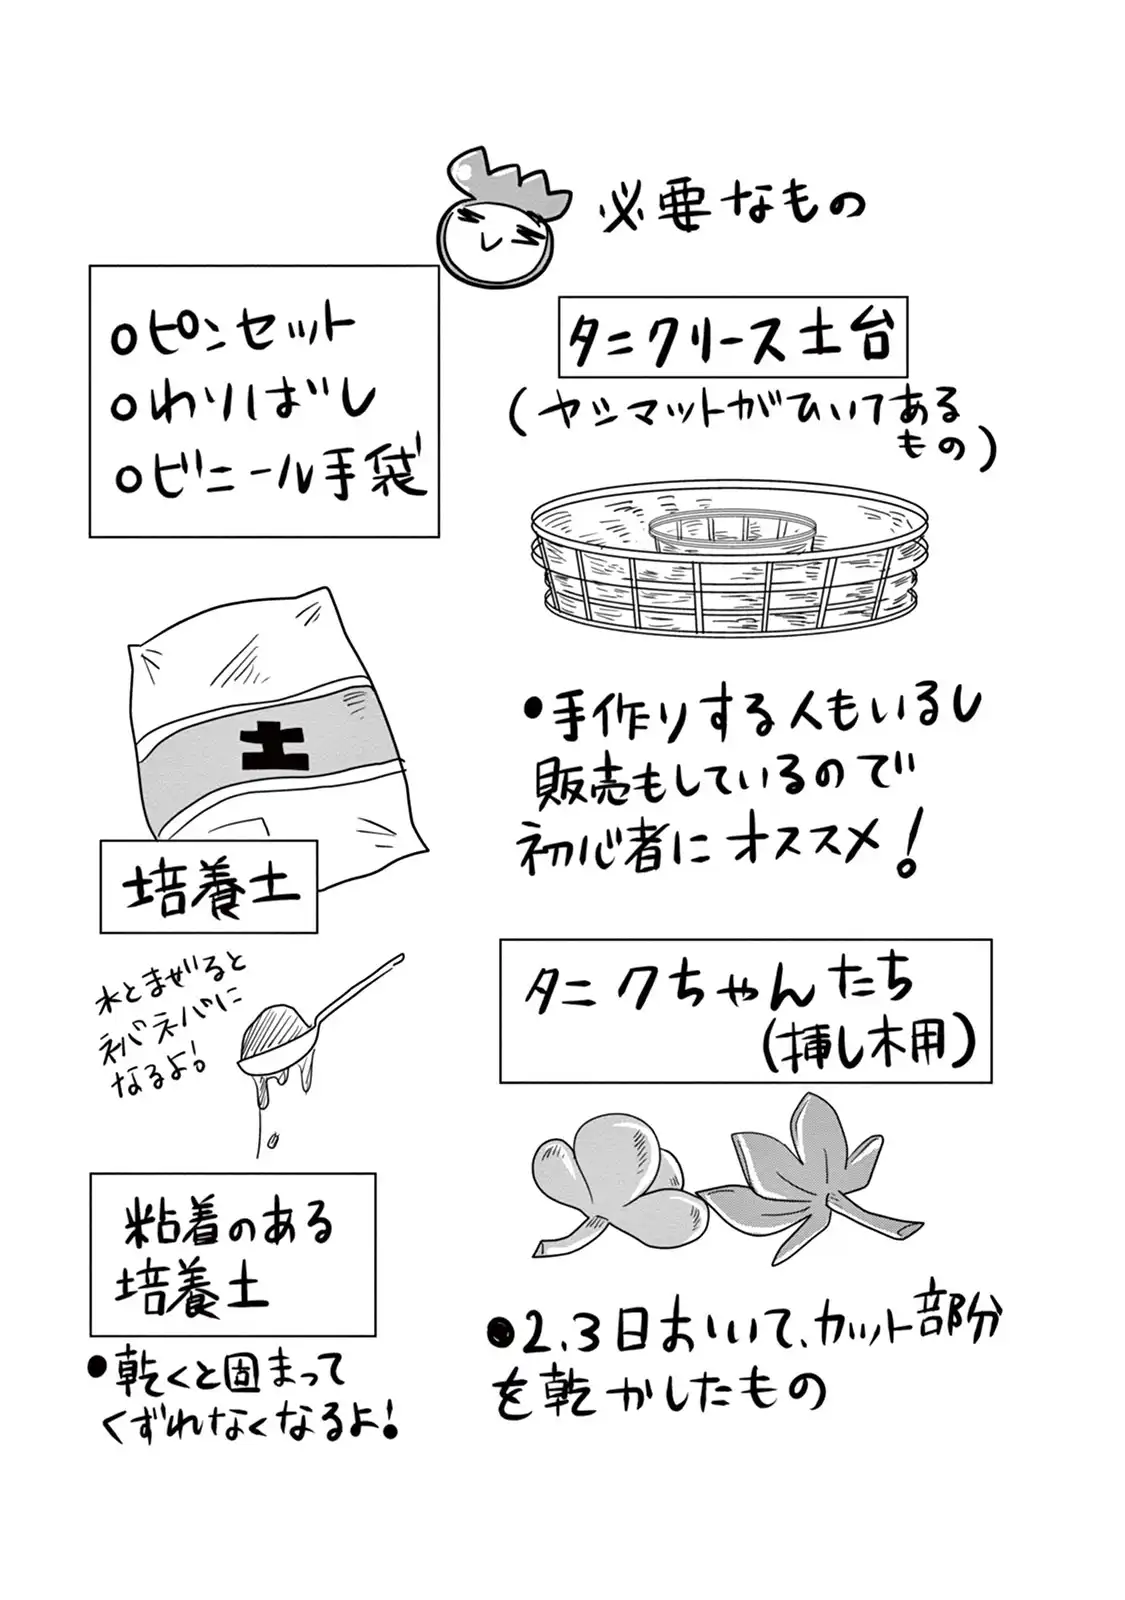 必要なもの
○ピンセット
○わりばし
○ビニール手袋
タニクリース土台
(ヤシマットがひいてある
もの)
土
培養土
●手作りする人もいるし
販売もしているので
初心者にオススメ!
水とまぜると
ネバネバに
なるよ!
粘着のある
培養土
●乾くと固まって
くずれなくなるよ!
タニクちゃんたち
(挿し木用)
●2、3日おいて、カット部分
を乾かしたもの